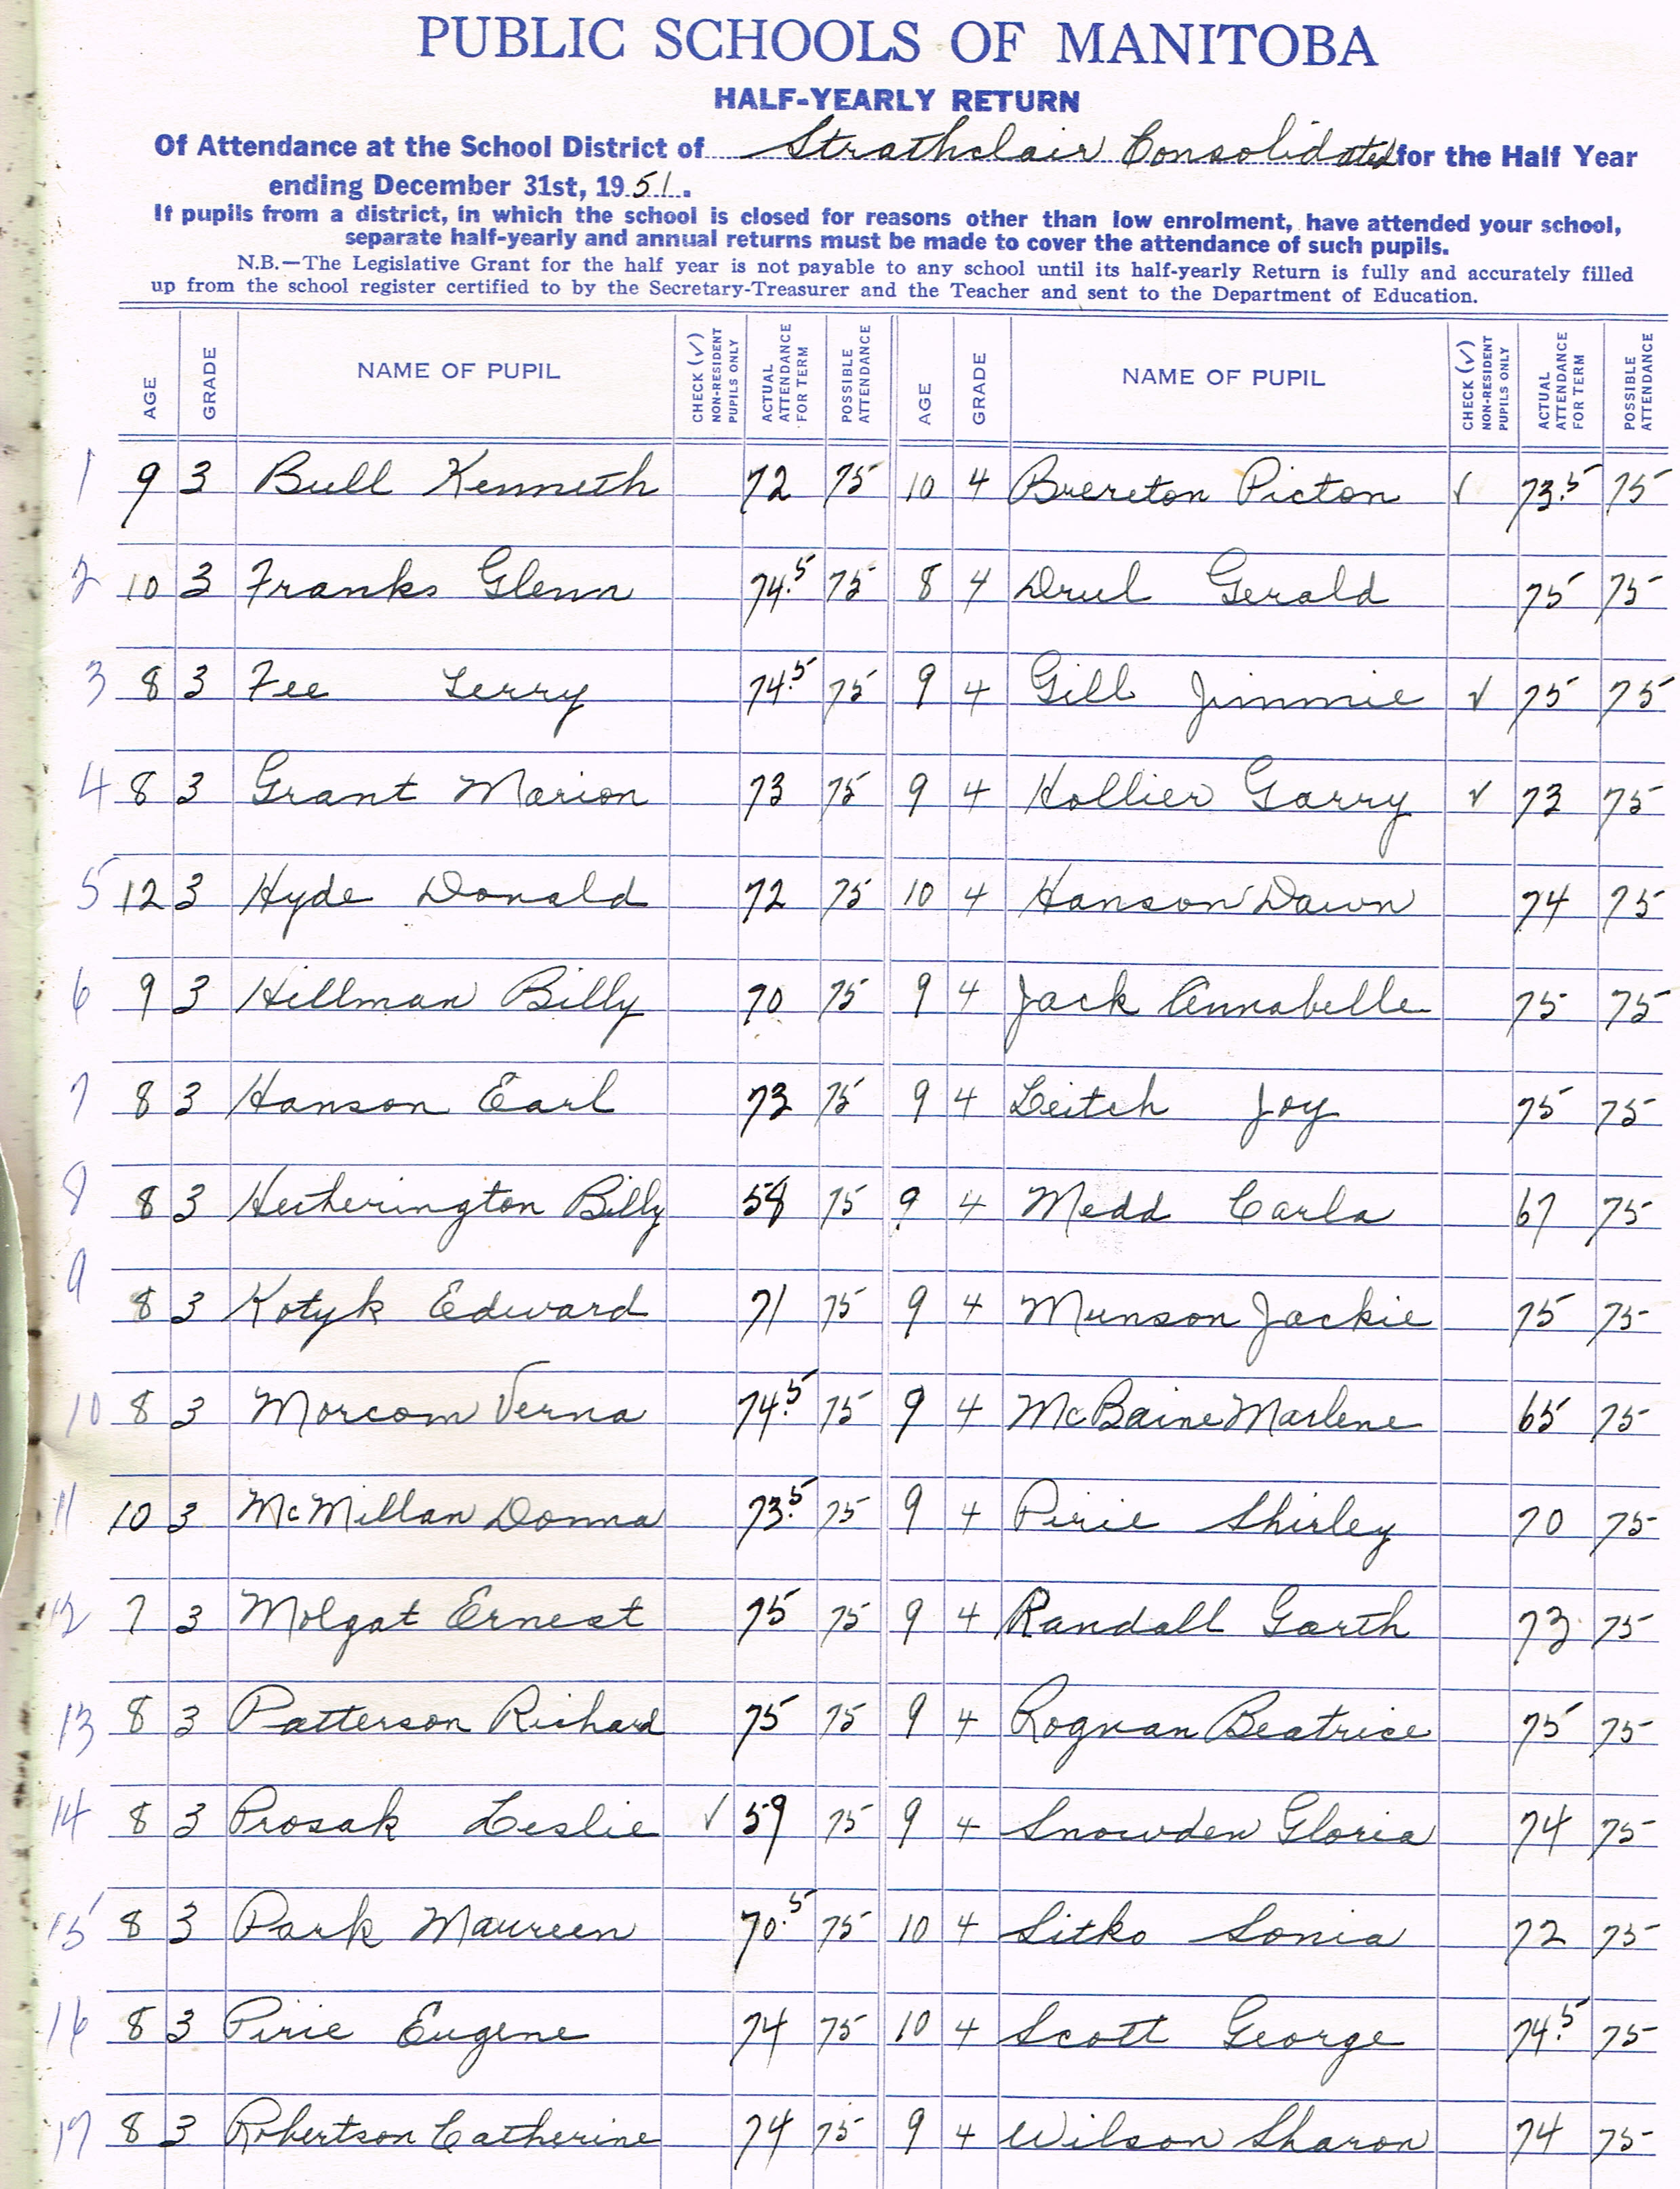 PUBLIC SCHOOLS OF MANITOBA
HALF-YEARLY RETURN
Of Attendance at the School District of Strathclair Consolidated for the Half Year
ending December 31st, 1951.
If pupils from a district, in which the school is closed for reasons other than low enrolment, have attended your school,
separate half-yearly and annual returns must be made to cover the attendance of such pupils.
N.B.—The Legislative Grant for the half year is not payable to any school until its half-yearly Return is fully and accurately filled
up from the school register certified to by the Secretary-Treasurer and the Teacher and sent to the Department of Education.
AGE GRADE NAME OF PUPIL CHECK (√) NON-RESIDENT PUPILS ONLY ACTUAL ATTENDANCE FOR TERM POSSIBLE ATTENDANCE AGE GRADE NAME OF PUPIL CHECK (√) NON-RESIDENT PUPILS ONLY ACTUAL ATTENDANCE FOR TERM POSSIBLE ATTENDANCE
1 9 3 Bull Kenneth 72 75 10 4 Brereton Picton √ 73.5 75
2 10 3 Franks Glenn 74.5 75 8 4 Drul Gerald 75 75
3 8 3 Fee Terry 74.5 75 9 4 Gill Jimmie √ 75 75
4 8 3 Grant Marion 73 75 9 4 Hollier Garry √ 73 75
5 12 3 Hyde Donald 72 75 10 4 Hanson Dawn 74 75
6 9 3 Hillman Billy 70 75 9 4 Jack Annabelle 75 75
7 8 3 Hanson Earl 73 75 9 4 Leitch Joy 75 75
8 8 3 Hetherington Billy 75 9 4 Medd Carla 67 75
9 8 3 Kotyk Edward 71 75 9 4 Munson Jackie 75 75
10 8 3 Morcom Verna 74.5 75 9 4 McBaine Marlene 65 75
11 10 3 McMillan Donna 73.5 75 9 4 Pirie Shirley 70 75
12 7 3 Molgat Ernest 75 75 9 4 Randall Garth 73 75
13 8 3 Patterson Richard 75 75 9 4 Rognan Beatrice 75 75
14 8 3 Prosak Leslie √ 59 75 9 4 Snowden Gloria 74 75
15 8 3 Park Maureen 70.5 75 10 4 Sitko Sonia 72 75
16 8 3 Pirie Eugene 74 75 10 4 Scott George 74.5 75
17 8 3 Robertson Catherine 74 75 9 4 Wilson Sharon 74 75